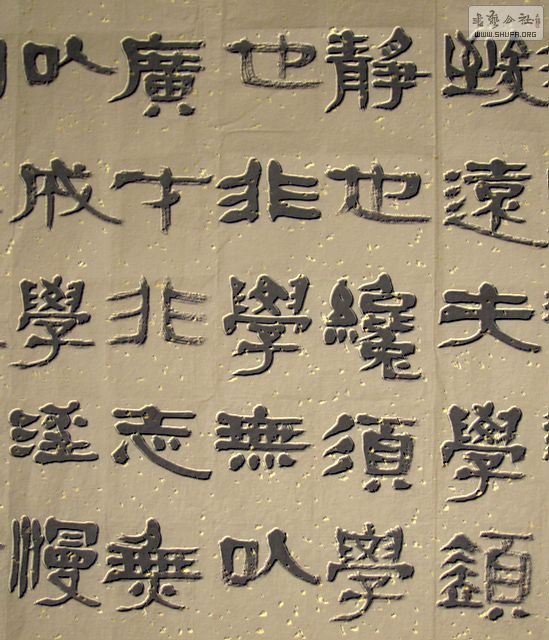 致遠夫學須
靜也纔須學
也非學無以
廣才非志無
以成學淫慢
书艺公社
WWW.SHUFA.ORG